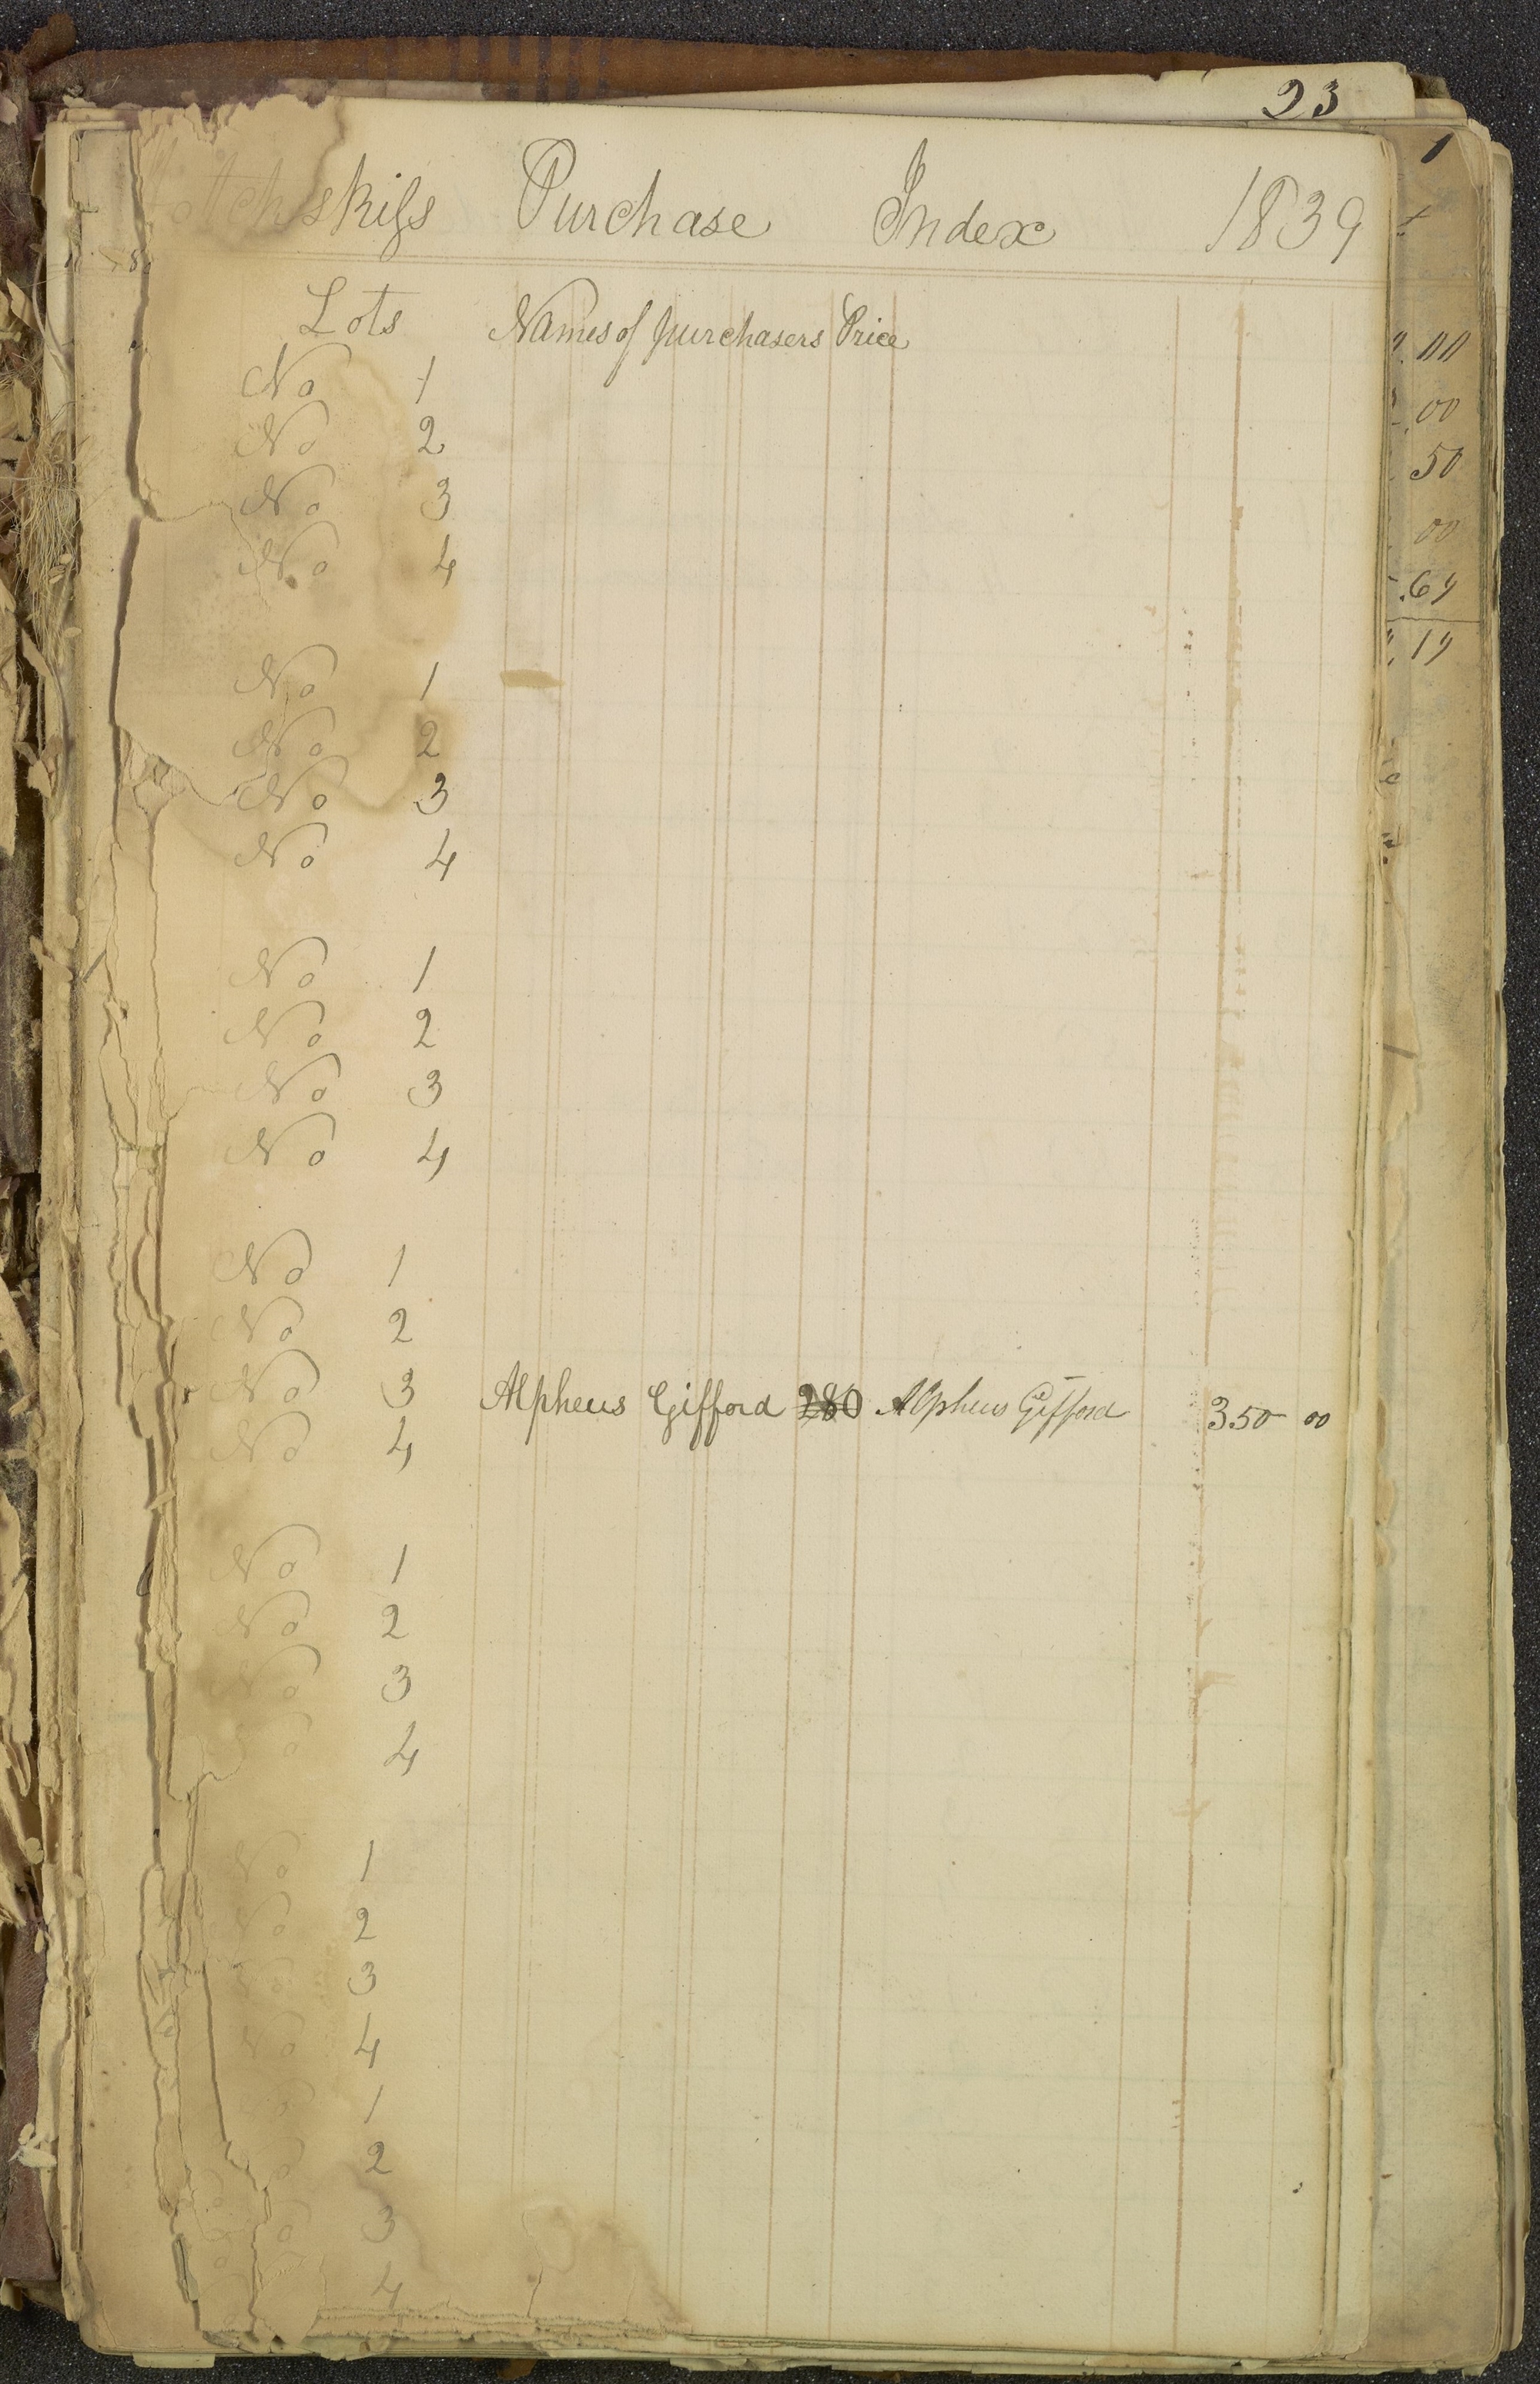 23
1
Hotchskifs Purchase Index 1839
Lots Names of purchasers Price
No 1
No 2
No 3
No 4
No 1
No 2
No 3
No 4
No 1
No 2
No 3
No 4
No 1
No 2
No 3 Alpheus Gifford 280 Alpheus Gifford 350 00
No 4
No 1
No 2
No 3
No 4
No 1
No 2
No 3
No 4
1
2
3
4
00
00
50
00
.69
19